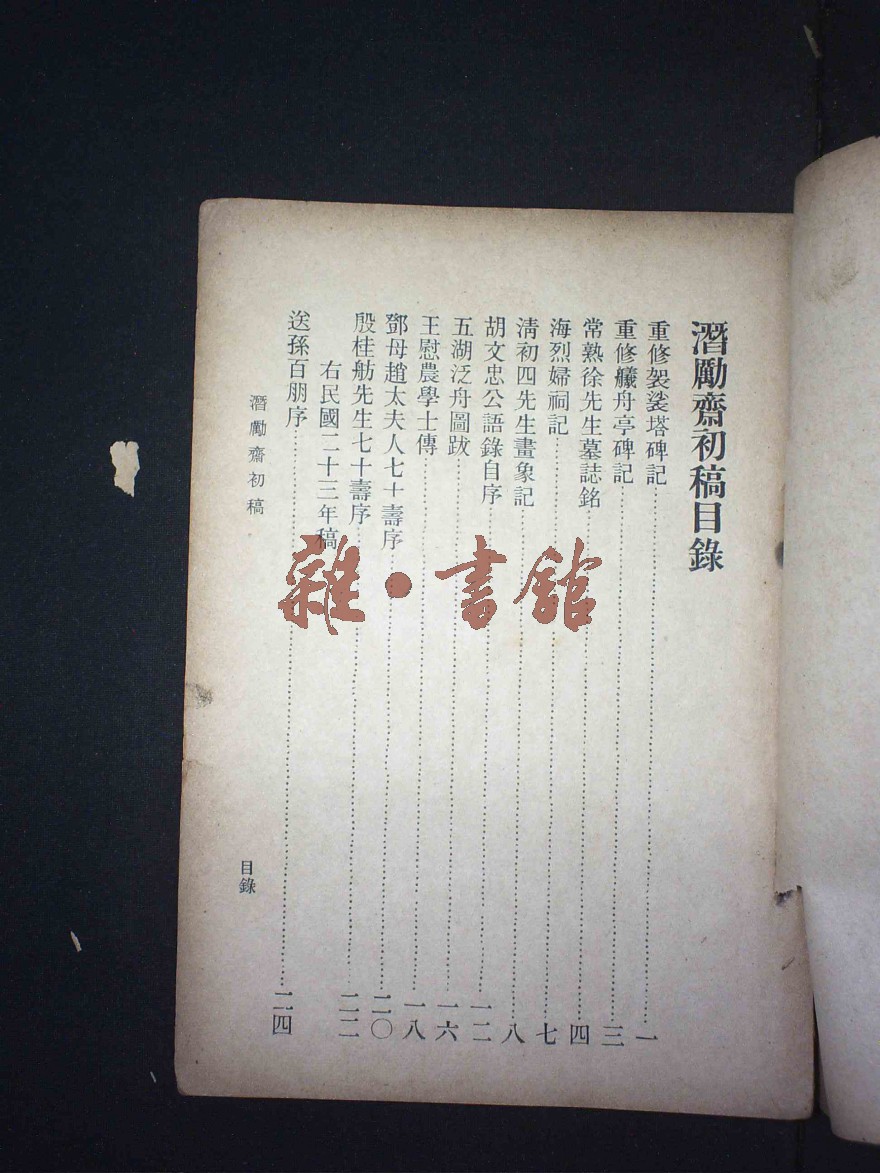 潛勵齋初稿目錄
重修袈裟塔碑記……一
重修艤舟亭碑記……三
常熟徐先生墓誌銘……四
海烈婦祠記……七
淸初四先生畫象記……八
胡文忠公語錄自序……一二
五湖泛舟圖跋……一六
王慰農學士傳……一八
鄧母趙太夫人七十壽序……二〇
殷桂舫先生七十壽序……二二
右民國二十三年稿
送孫百朋序……二四
潛勵齋初稿
目錄
雜·書館